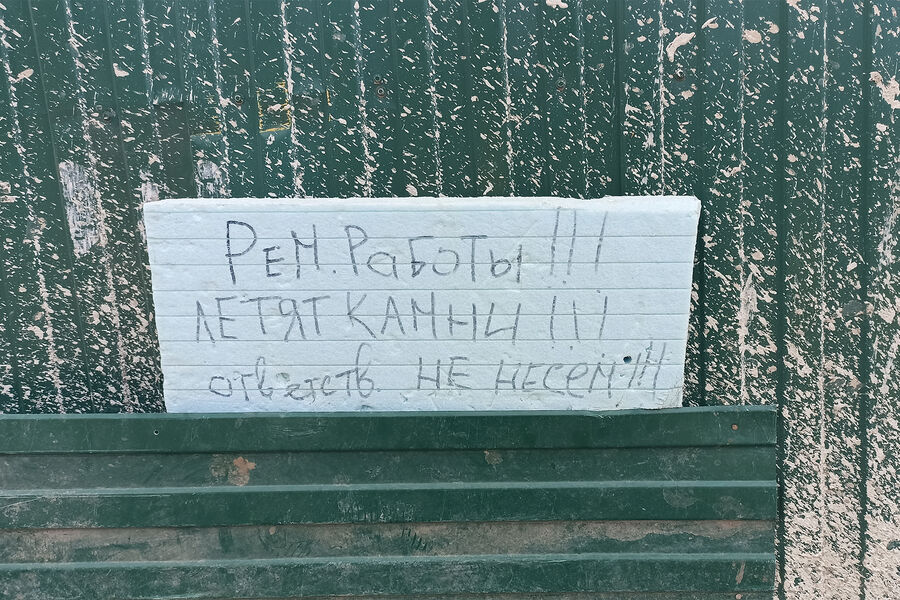 Рем. Работы !!!
ЛЕТЯТ КАМНИ !!!
ответств. НЕ НЕСЕМ !!!